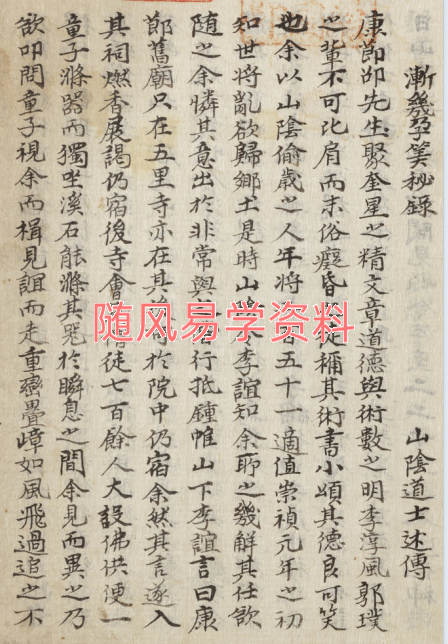 漸幾孕筭秘錄
山陰道士述傳
康節邵先生聚奎星之精文章道德與術數之明李淳風郭璞
之輩不可比肩而末俗癡昏徒稱其術書小頌其德良可笑
也余以山陰偷歲之人年將百五十一適值崇禎元年之初
知世將亂欲歸鄉土是時山令李誼知余聊之幾解其任欲
随之余憐其意出於非常與行抵鍾帷山下李誼言曰康
節舊廟只在五里寺亦在其於院中仍宿余然其言遂入
其祠燃香展謁仍宿後寺會徒七百餘人大設佛供使一
童子滌器而獨坐溪石能滌其於瞬息之間余見而異之乃
欲叩問童子視余而揖見誼而走重巒疊嶂如風飛過追之不
随风易学资料